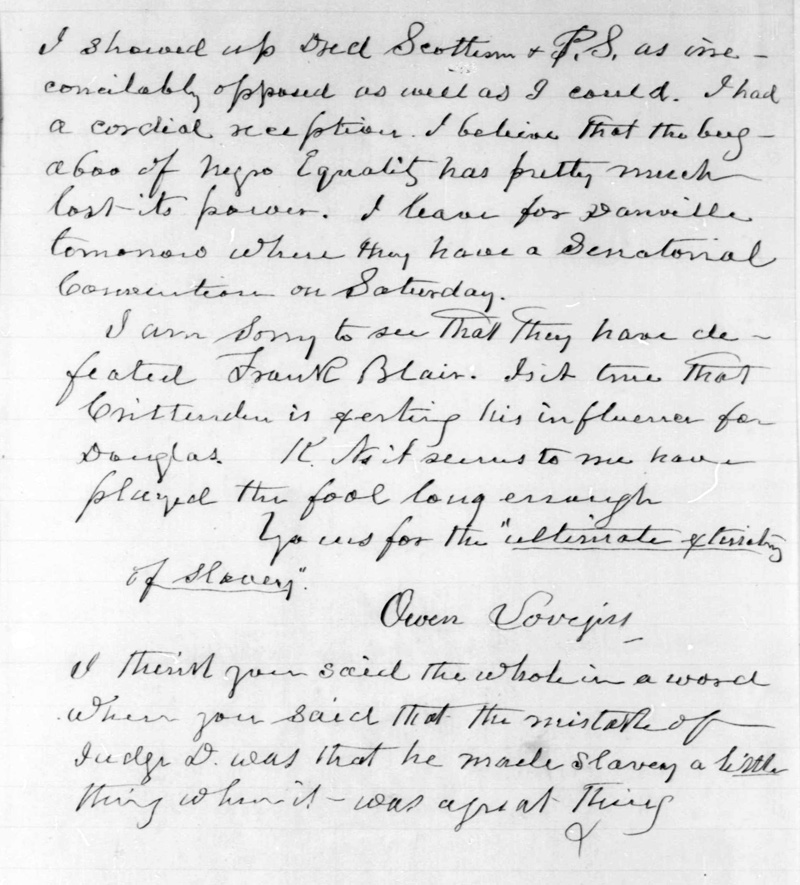 I showed up Dred Scottism & P.S. as irre-
concilably opposed as well as I could. I had
a cordial reception. I believe that the bug-
aboo of Negro Equality has pretty much
lost its power. I leave for Danville
tomorrow where they have a Senatorial
Convention on Saturday.
I am sorry to see that they have de-
feated Frank Blair. Is it true that
Crittenden is exerting his influence for
Douglas. K. Ns it seems to me have
played the fool long enough
Yours for the "ultimate extinction
of slavery".
Owen Lovejoy
I think you said the whole in a word
when you said that the mistake of
Judge D. was that he made slavery a little
thing when it was a great thing